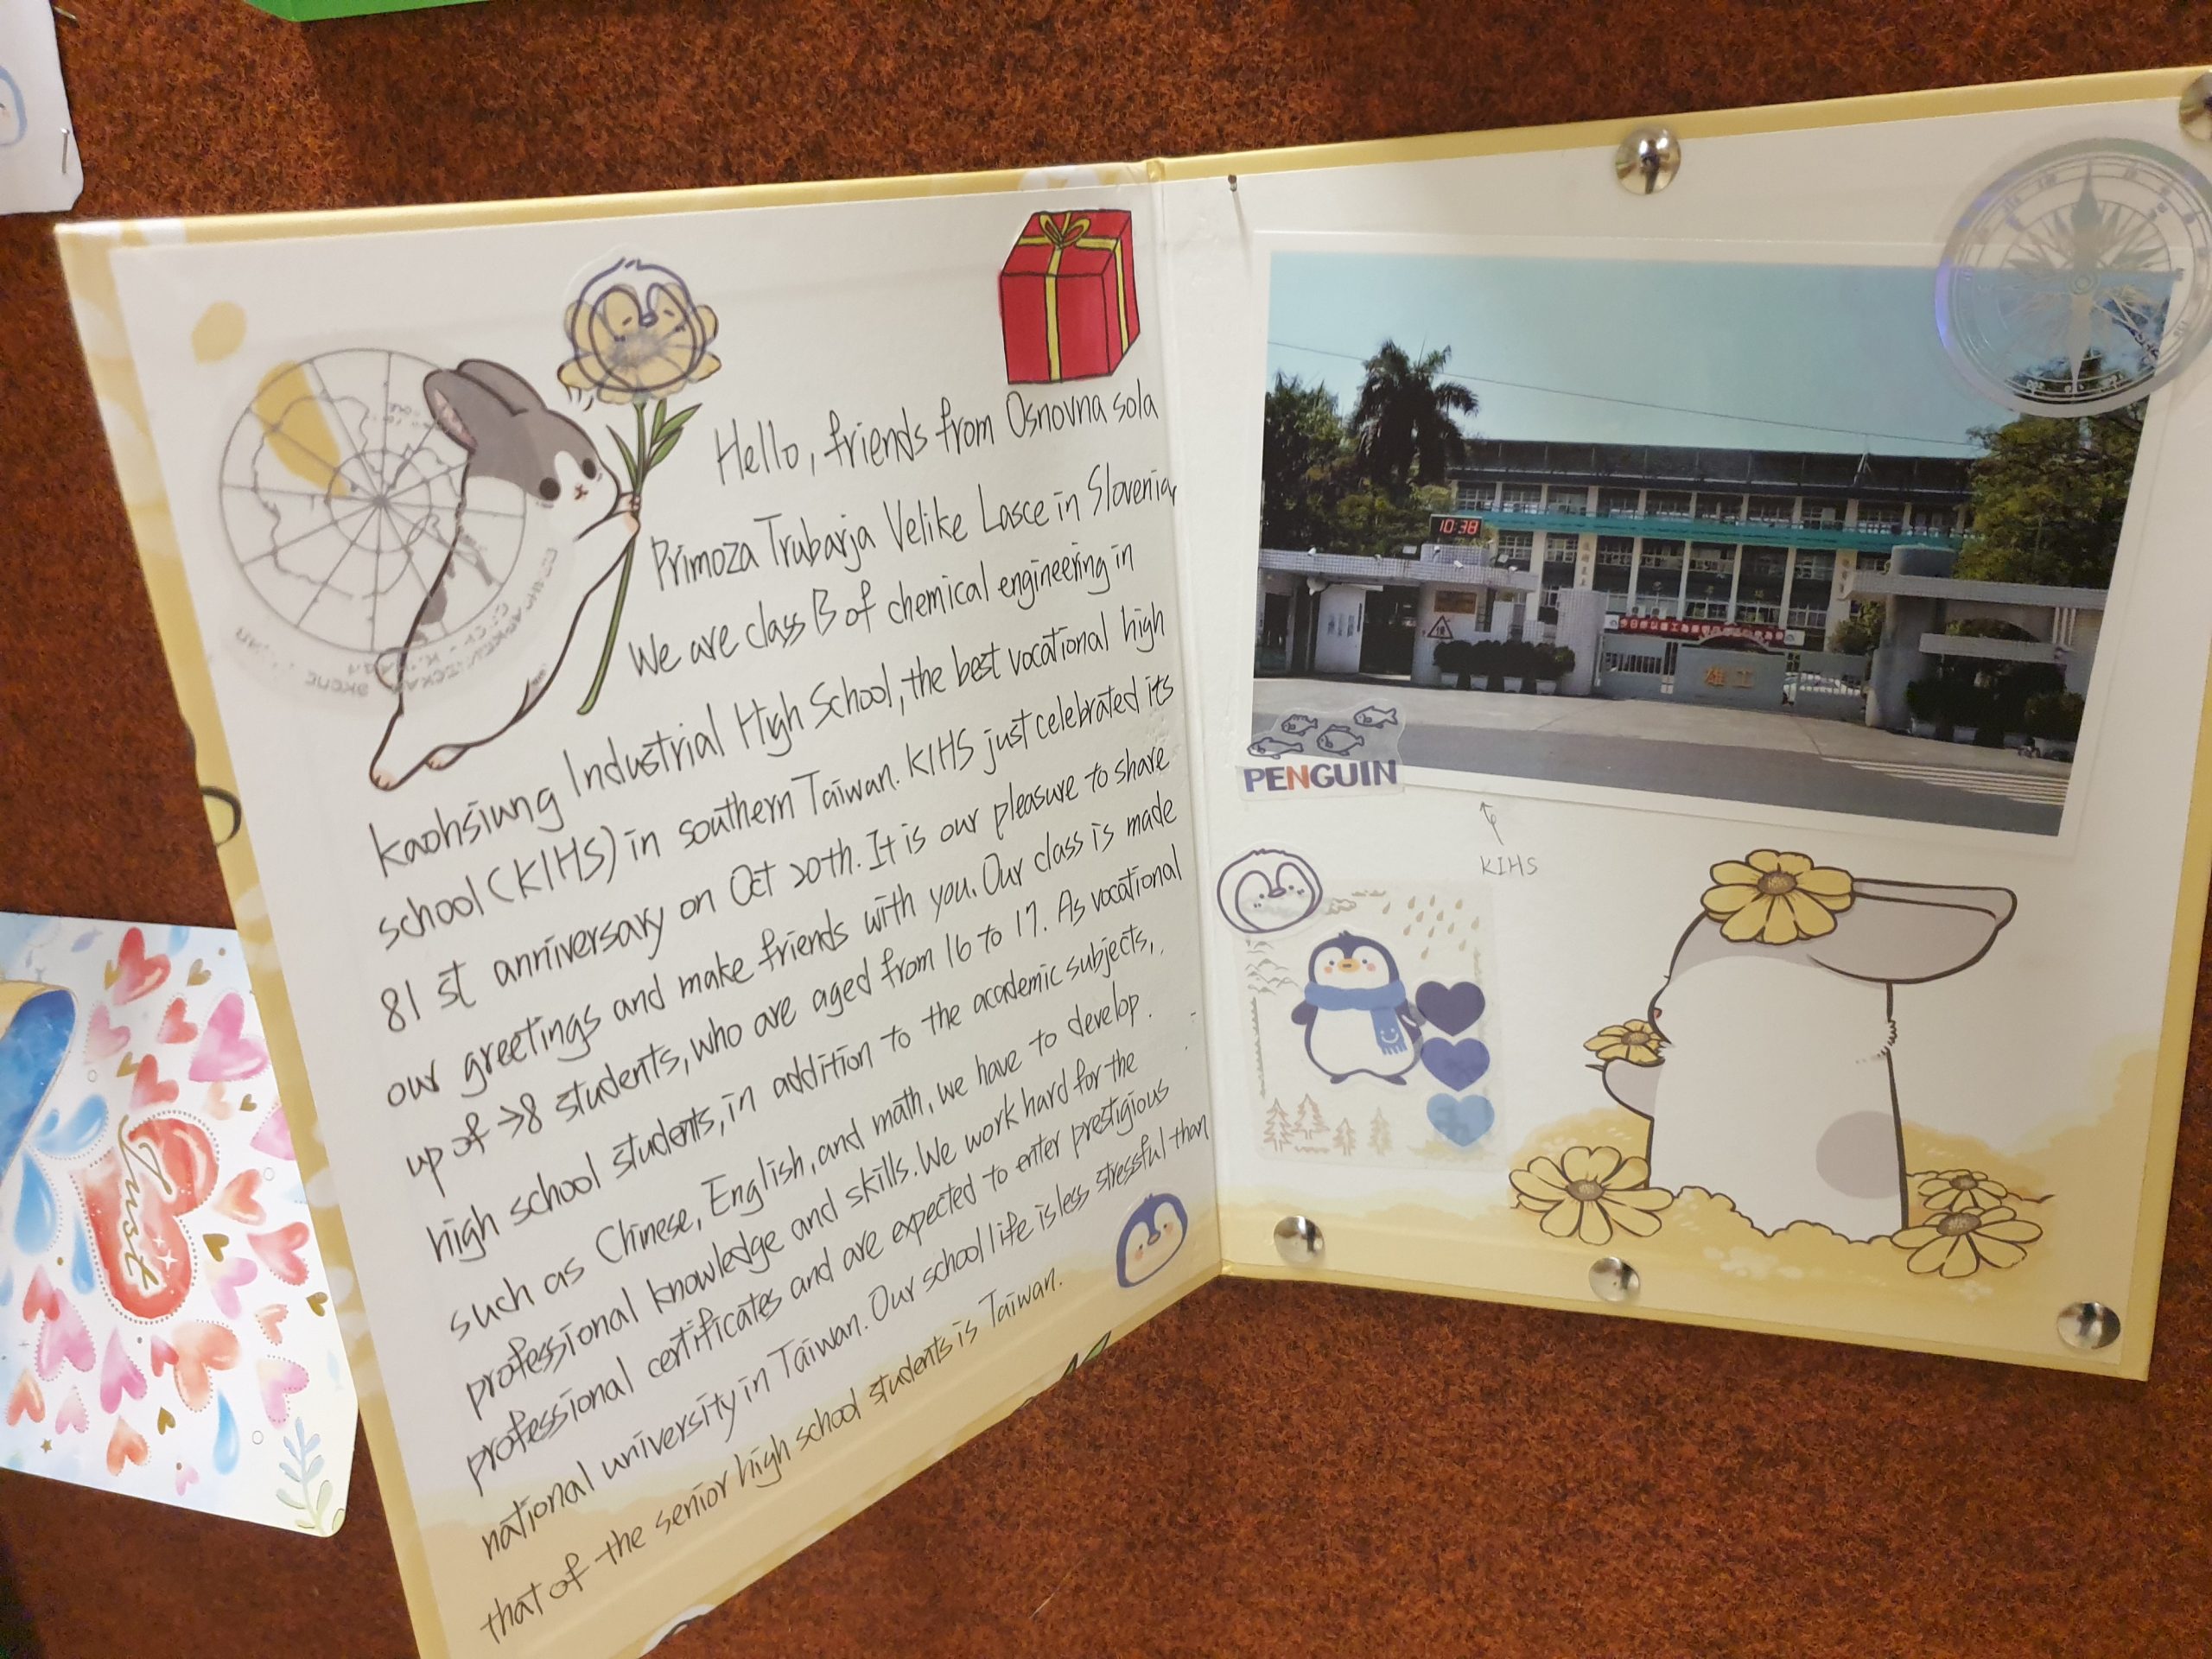 Hello, friends from Osnovna sola
Primoza Trubarja Velike Lasce in Slovenia,
We are class B of chemical engineering in
Kaohsiung Industrial High School, the best vocational high
school (KIHS) in southern Taiwan. KIHS just celebrated its
81 st anniversary on Oct 20th. It is our pleasure to share
our greetings and make friends with you. Our class is made
up of 28 students, who are aged from 16 to 17. As vocational
high school students, in addition to the academic subjects,
such as Chinese, English, and math, we have to develop
professional knowledge and skills. We work hard for the
professional certificates and are expected to enter prestigious
national university in Taiwan. Our school life is less stressful than
that of the senior high school students is Taiwan.
10:38
雄工
PENGUIN
KIHS
Just